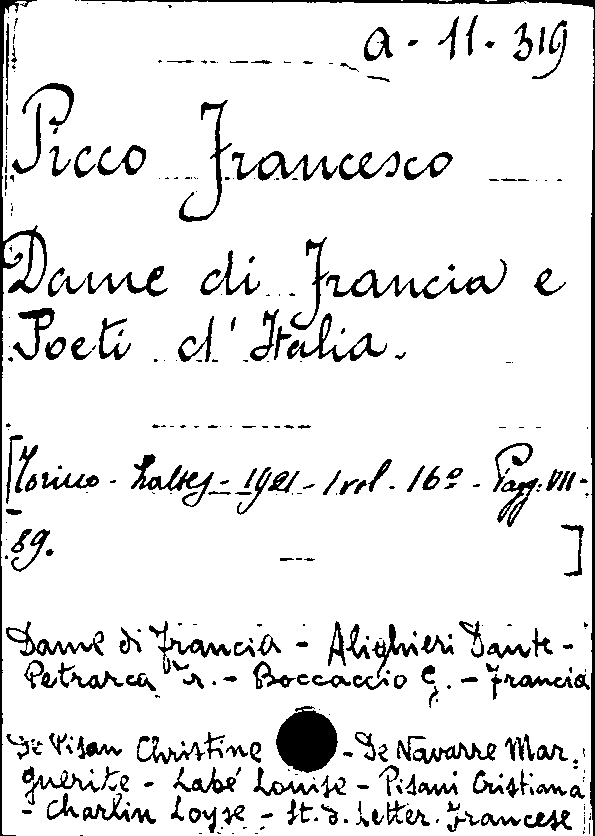 a - 11 - 319
Picco Francesco
Dame di Francia e
Poeti d'Italia.
[Torino - Lattes - 1921 - 1 vol. 16º - Pagg. VII -
89. ]
Dame di Francia - Alighieri Dante -
Petrarca Fr. - Boccaccio G. - Francia
De Pisan Christine - De Navarre Mar=
guerite - Labé Louise - Pisani Cristiana
- Charlin Loyse - St. d. Letter. Francese